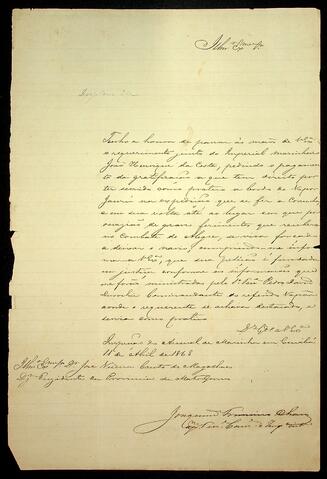 Illmo. Exmo. Sr.
Tenho a honra de passar ás mãos de V. Exa.
o requerimento junto do Imperial marinheiro
João Henrique da Costa, pedindo o pagamento
da gratificação a que tem direito por
ter servido como pratico a bordo do Vapor
Jaurú na expedição que se fez a Corumbá
e em sua volta até ao lugar em que por
occasião de graves ferimentos que recebeu
no Combate do Alegre, se viu forçado
a deixar o navio, cumprindo-me informar
a V. Exa. que sua petição é fundada
em justiça, conforme as informações que
me forão ministradas pelo 1o. Tene. 
Commandante do referido Vapor
aonde o requerente se achava destacado, e
servia como pratico
De. Ge. a V. Exa.
Inspeção do Arsenal de Marinha em Cuiabá
11 de Abril de 1868
Illmo. Exmo. Sr. Dr. José Vieira Couto de Magalhães
Do. Presidente da Provincia de Mato Grosso
Joaquim Francisco